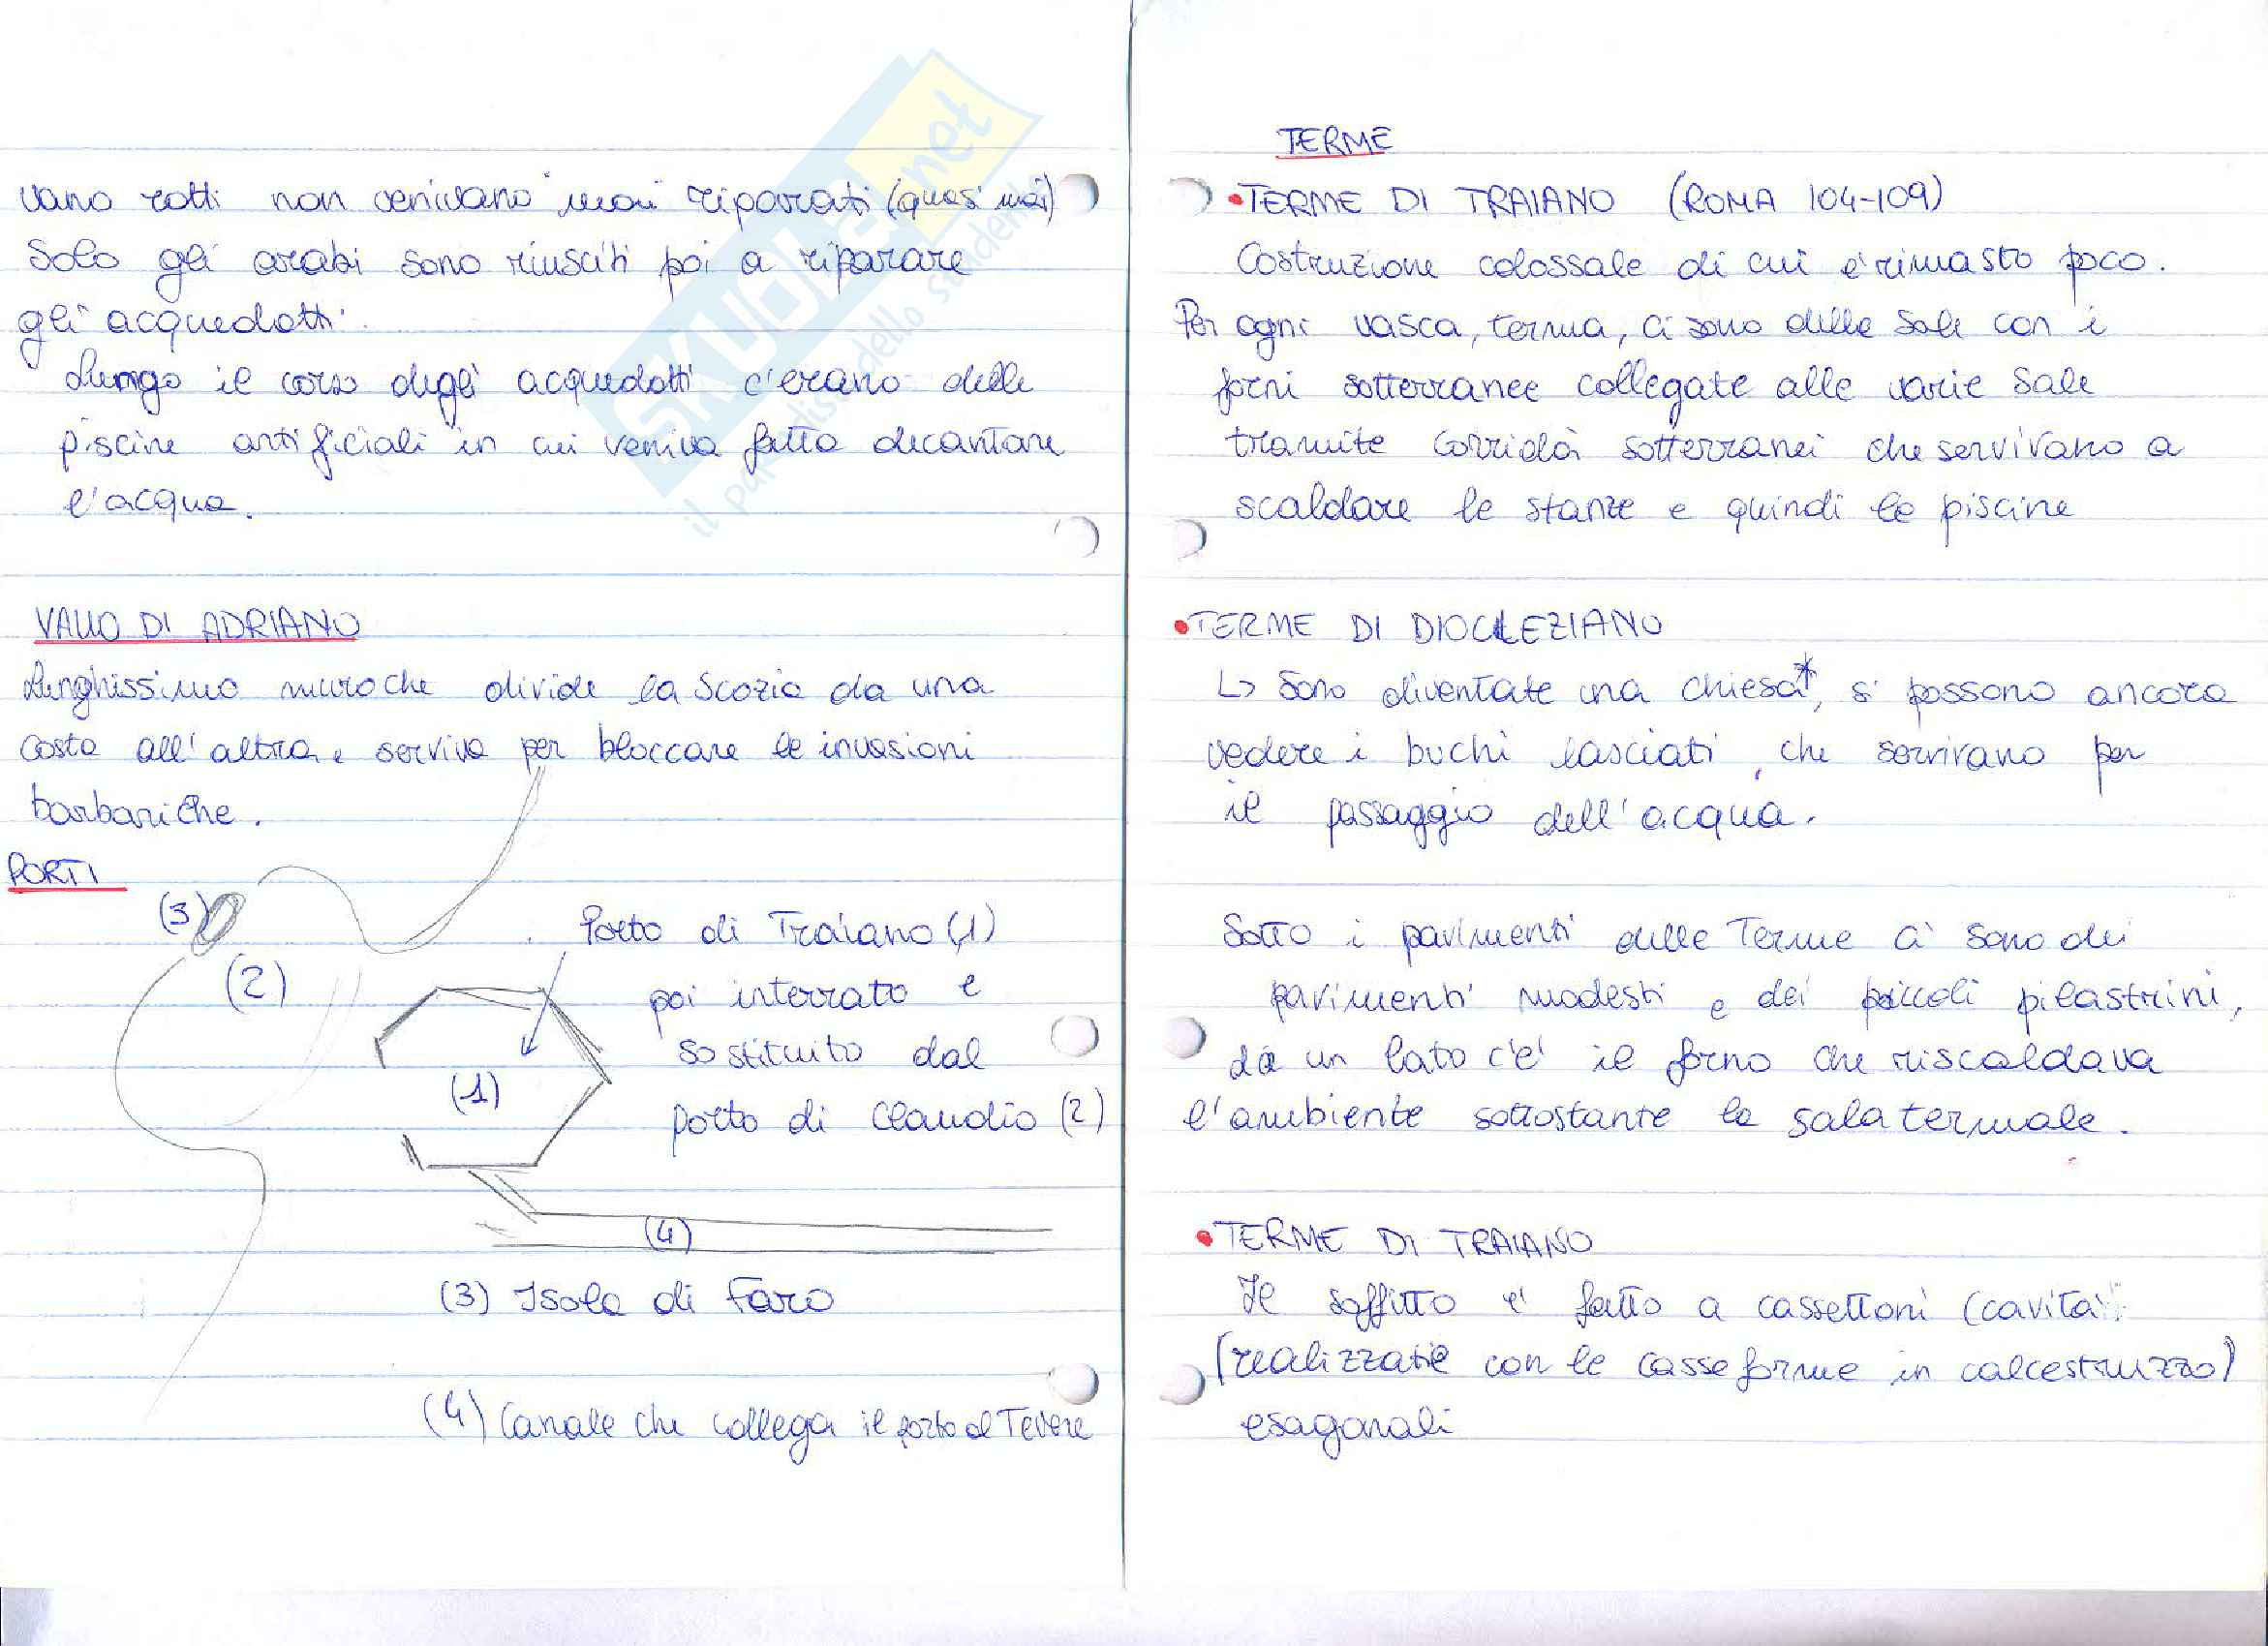 vano rotti non venivano mai riparati (quasi mai)
Solo gli arabi sono riusciti poi a riparare
gli acquedotti.
Lungo il corso degli acquedotti c'erano delle
piscine artificiali in cui veniva fatta decantare
l'acqua.
VALLO DI ADRIANO
Lunghissimo muro che divide la Scozia da una
costa all'altra e serviva per bloccare le invasioni
barbariche.
PORTI
(3)
(2)
(1)
Porto di Traiano (1)
poi interrato e
sostituito dal
porto di Claudio (2)
(4)
(3) Isola di Faro
(4) Canale che collega il porto al Tevere
TERME
•TERME DI TRAIANO (ROMA 104-109)
Costruzione colossale di cui è rimasto poco.
Per ogni vasca, terma, ci sono delle sale con i
forni sotterranee collegate alle varie sale
tramite corridoi sotterranei che servivano a
scaldare le stanze e quindi le piscine
•TERME DI DIOCLEZIANO
↳ Sono diventate una chiesa*, si possono ancora
vedere i buchi lasciati, che servivano per
il passaggio dell'acqua.
Sotto i pavimenti delle Terme ci sono dei
pavimenti modesti e dei piccoli pilastrini,
da un lato c'è il forno che riscaldava
l'ambiente sottostante la sala termale.
•TERME DI TRAIANO
Il soffitto è fatto a cassettoni (cavità
(realizzate con le casseforme in calcestruzzo)
esagonali
SKUOLA.net
il paradiso dello studente